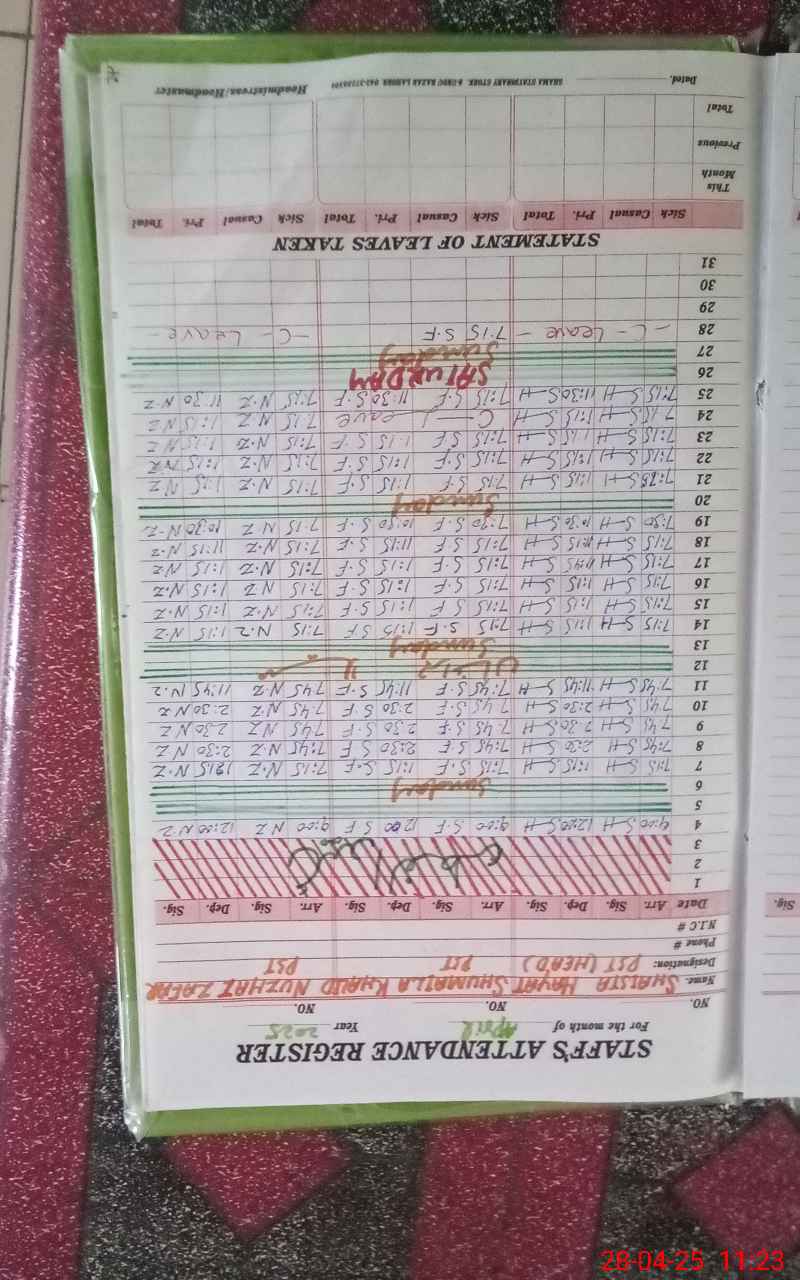 STAFF'S ATTENDANCE REGISTER
For the month of April Year 2025
NO. NO. NO.
Name. SHAISTA HAYAT SHUMAILA KHALID NUZHAT ZAFAR
Designation: PST (HEAD) PST PST
Phone #
N.I.C #
Date Arr. Sig. Dep. Sig. Arr. Sig. Dep. Sig. Arr. Sig. Dep. Sig.
1
2
3
4 9:00 S-H 12:00 S-H 9:00 S.F 12:00 S.F 9:00 N.Z 12:00 N.Z
5
6 Sunday
7 7:15 S-H 1:15 S-H 7:15 S.F 1:15 S.F 7:15 N.Z 12:15 N.Z
8 7:45 S-H 2:30 S-H 7:45 S.F 2:30 S.F 7:45 N.Z 2:30 N.Z
9 7:45 S-H 2:30 S-H 7:45 S.F 2:30 S.F 7:45 N.Z 2:30 N.Z
10 7:45 S-H 2:30 S-H 7:45 S.F 2:30 S.F 7:45 N.Z 2:30 N.Z
11 7:45 S-H 11:45 S-H 7:45 S.F 11:45 S.F 7:45 N.Z 11:45 N.Z
12
13 Sunday
14 7:15 S-H 1:15 S-H 7:15 S.F 1:15 S.F 7:15 N.Z 1:15 N.Z
15 7:15 S-H 1:15 S-H 7:15 S.F 1:15 S.F 7:15 N.Z 1:15 N.Z
16 7:15 S-H 1:15 S-H 7:15 S.F 1:15 S.F 7:15 N.Z 1:15 N.Z
17 7:15 S-H S-H 7:15 S.F 1:15 S.F 7:15 N.Z 1:15 N.Z
18 7:15 S-H 11:15 S-H 7:15 S.F 11:15 S.F 7:15 N.Z 11:15 N.Z
19 7:30 S-H 10:30 S-H 7:30 S.F 10:30 S.F 7:15 N.Z 10:30 N.Z
20 Sunday
21 S-H 1:15 S-H 7:15 S.F 1:15 S.F 7:15 N.Z 1:15 N.Z
22 7:15 S-H 1:15 S-H 7:15 S.F 1:15 S.F 7:15 N.Z 1:15 N.Z
23 7:15 S-H 1:15 S-H 7:15 S.F 1:15 S.F 7:15 N.Z 1:15 N.Z
24 7:15 S-H 1:15 S-H C - Leave 7:15 N.Z 1:15 N.Z
25 7:15 S-H 11:30 S-H 7:15 S.F 11:30 S.F 7:15 N.Z 11:30 N.Z
26 SATURDAY
27 Sunday
28 - C - Leave - 7:15 S.F - C - Leave -
29
30
31
STATEMENT OF LEAVES TAKEN
Sick Casual Pri. Total Sick Casual Pri. Total Sick Casual Pri. Total
This Month
Previous
Total
Dated. Headmistress/Headmaster
28-04-25 11:23